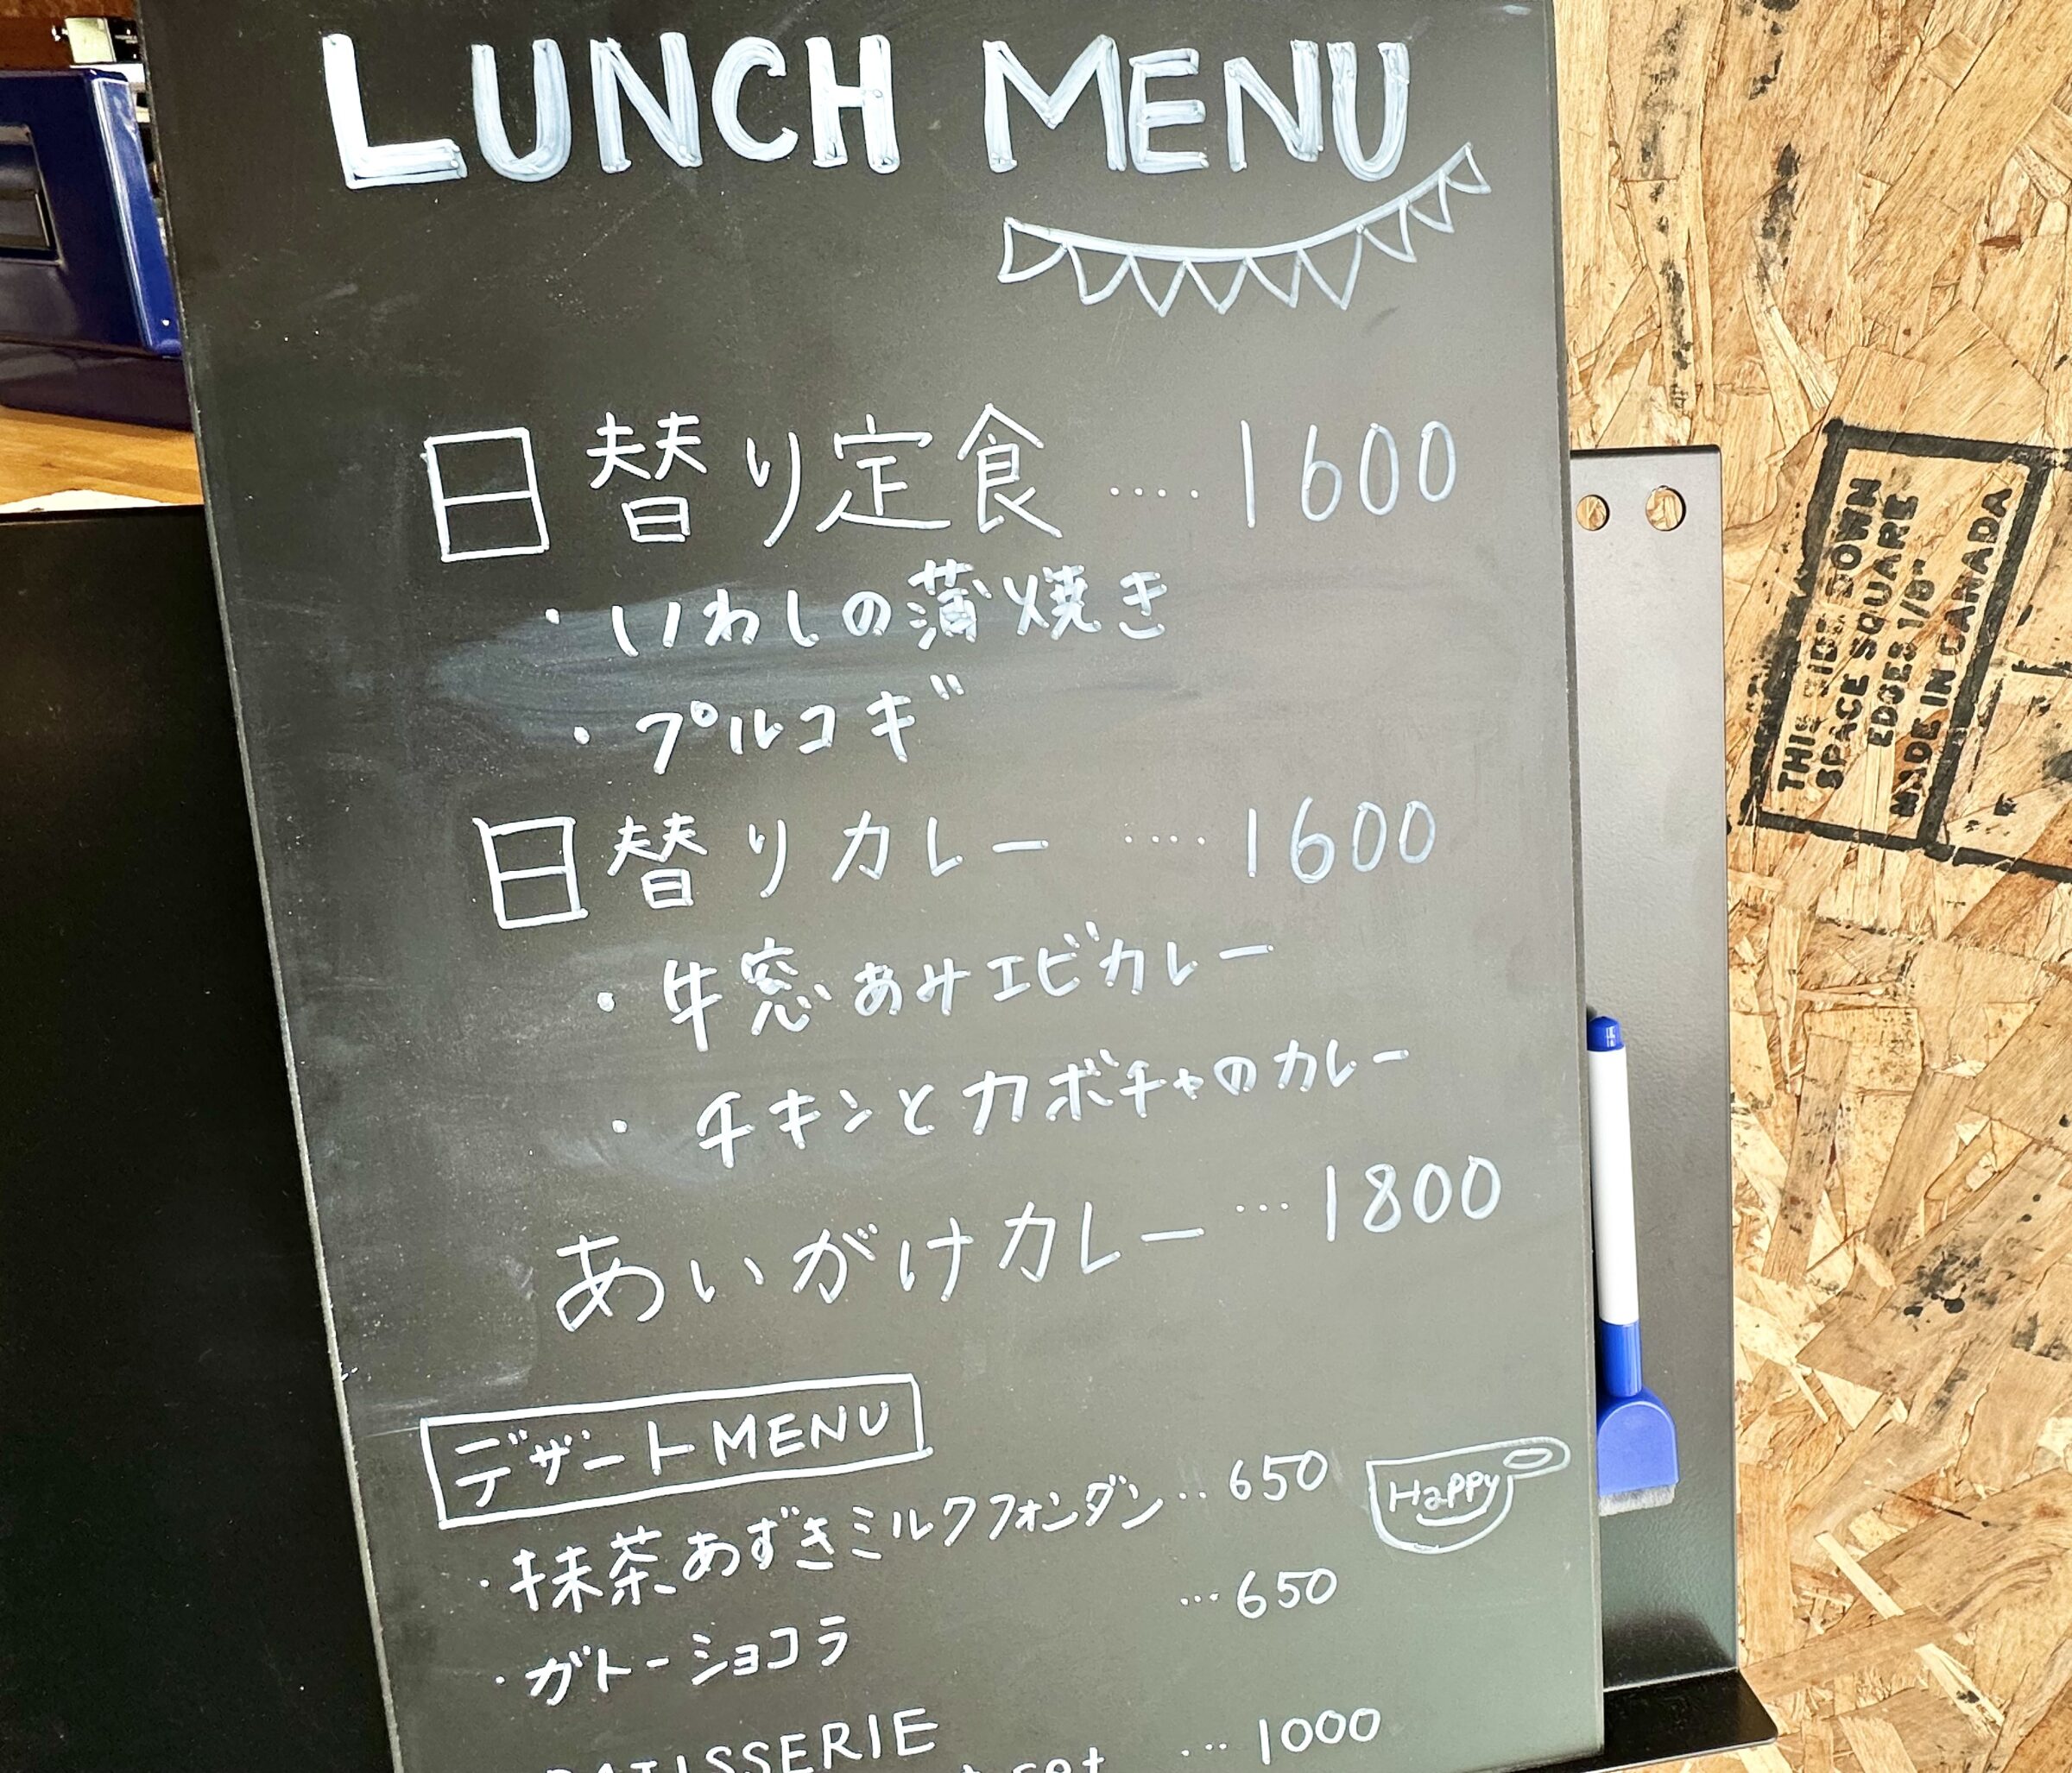 LUNCH MENU
日替り定食 ････ 1600
・いわしの蒲焼き
・プルコギ
日替りカレー ････ 1600
・牛窓あみエビカレー
・チキンとカボチャのカレー
あいがけカレー … 1800
デザートMENU
・抹茶あずきミルクフォンダン ‥ 650
Happy
・ガトーショコラ … 650
PATISSERIE
set … 1000
THIS SIDE DOWN
SPACE SQUARE
EDGES 1/8"
MADE IN CANADA